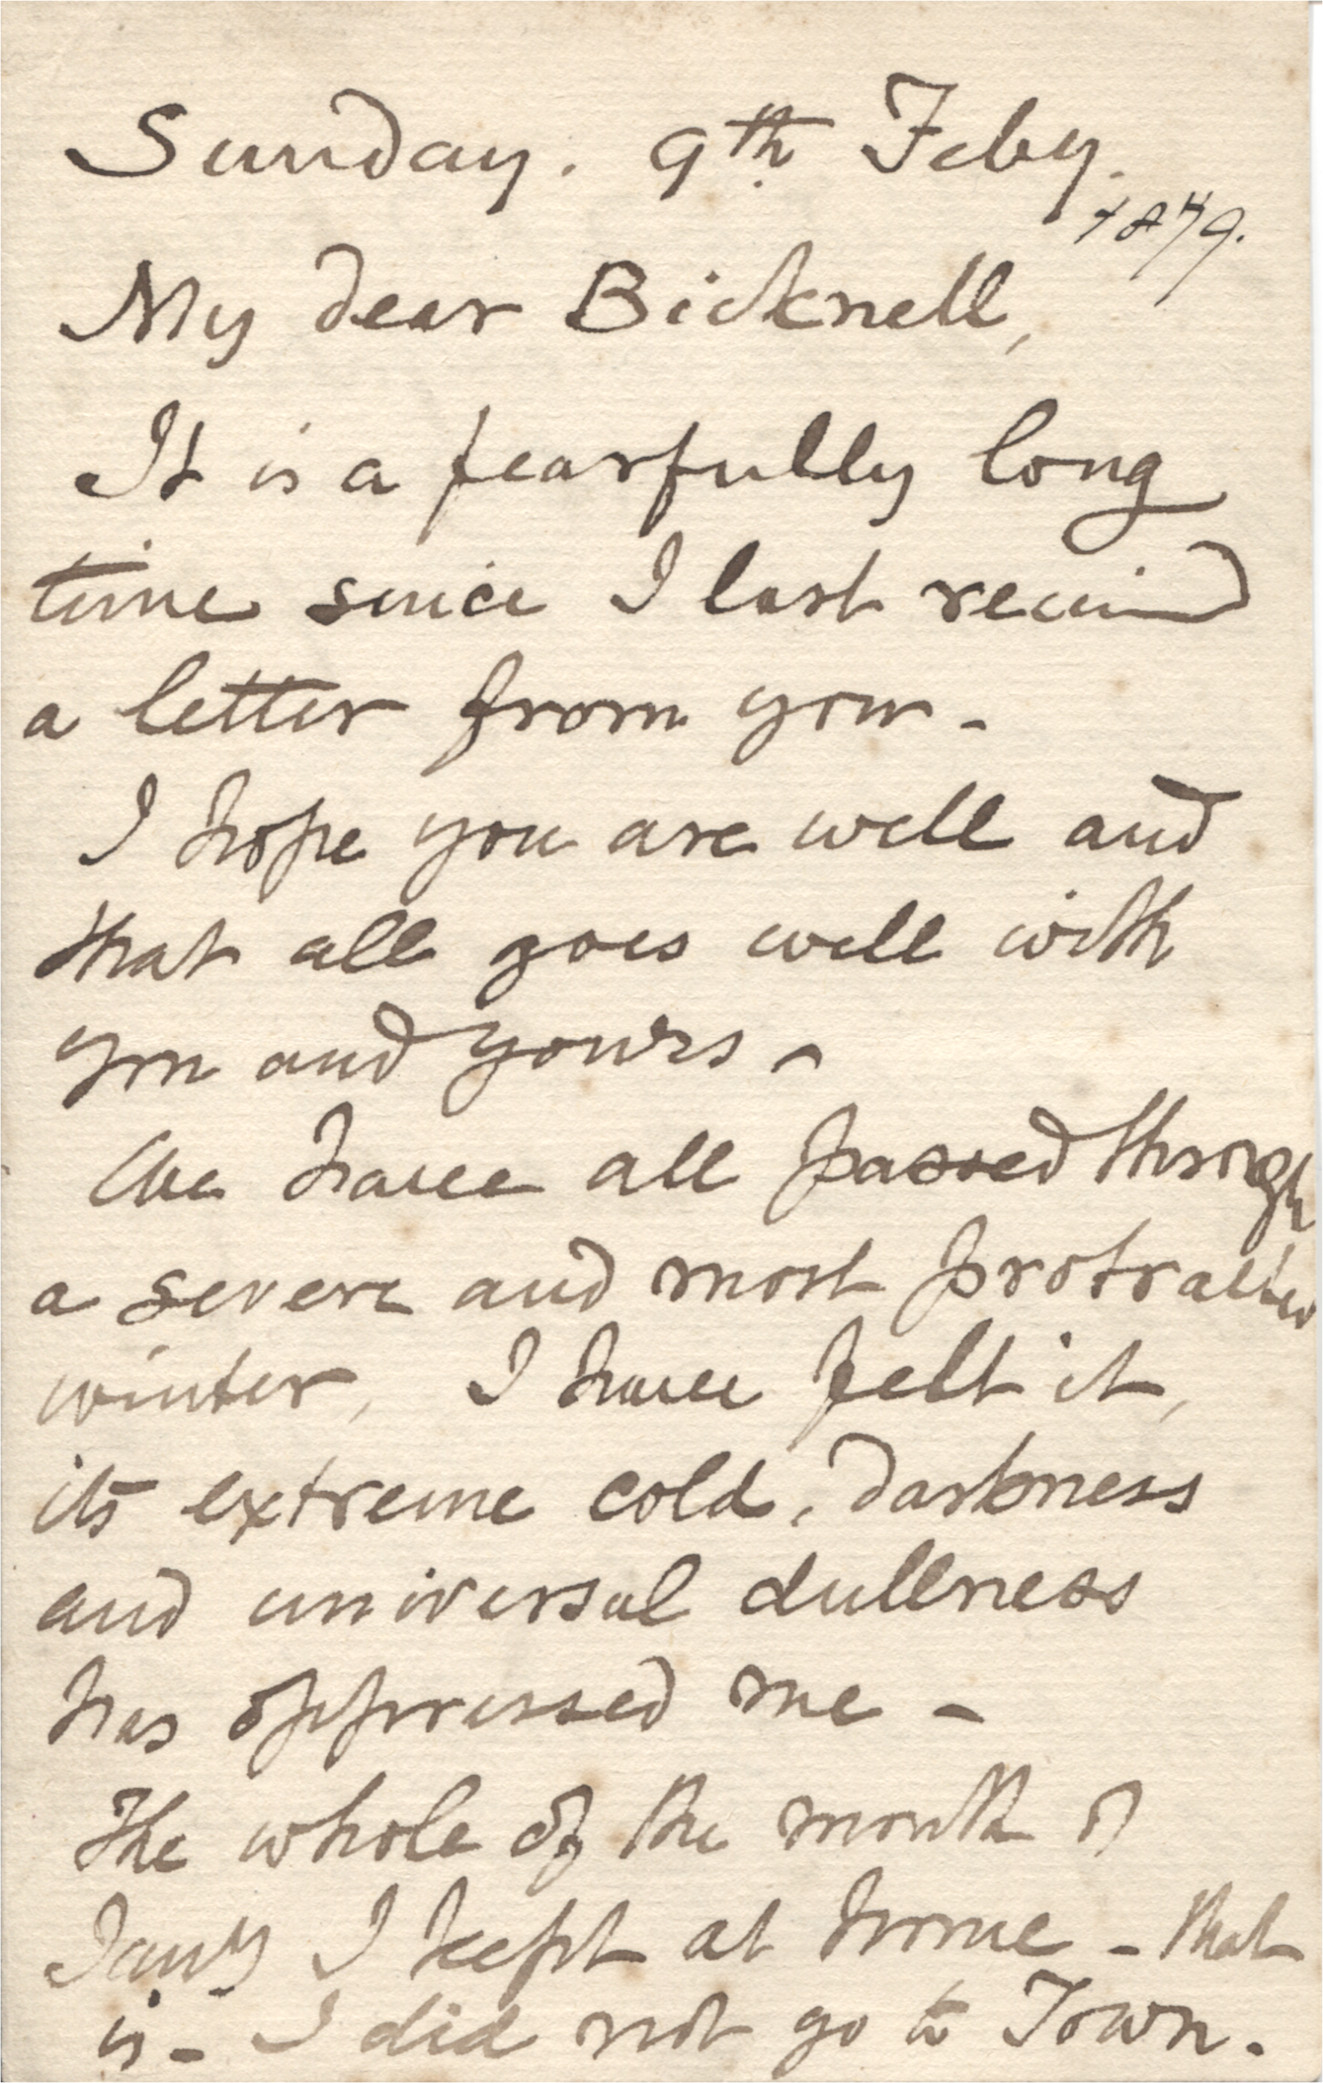 Sunday. 9th Feby.
1879.
My dear Bicknell,
It is a fearfully long
time since I last received
a letter from you -
I hope you are well and
that all goes well with
you and yours -
We have all passed through
a severe and most protracted
winter, I have felt it,
its extreme cold, darkness
and universal dullness
has oppressed me -
The whole of the month of
Jany I kept at home - that
is - I did not go to Town.